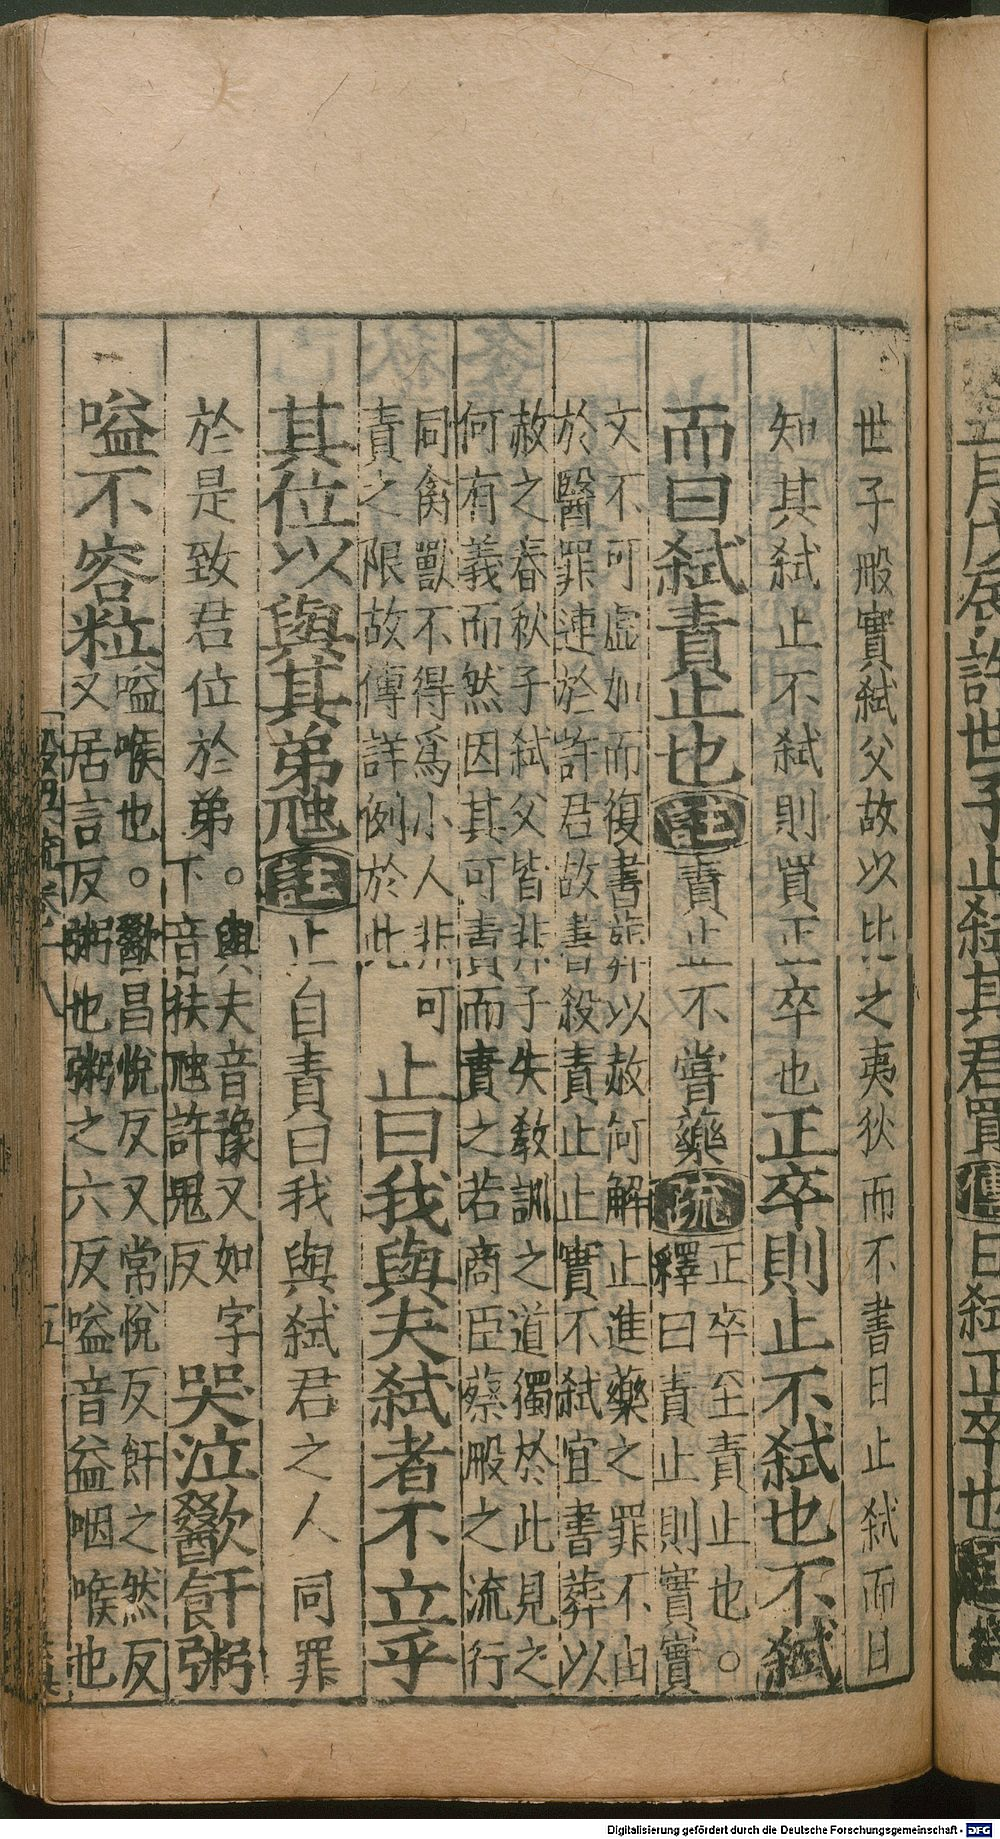 世子般實弑父故以比之夷狄而不書日止弑而日
知其弑止不弑則買正卒也正卒則止不弑也不弑
而曰弑責止也註責止不嘗藥疏正卒至責止也。
釋曰責止則實實
文不可虛加而復書葬以赦何解止進藥之罪不由
於醫罪連於許君故書殺責止止實不弑宜書葬以
赦之春秋子弑父皆非子失教訓之道獨於此見之
何有義而然因其可責而責之若商臣蔡般之流行
同禽獸不得爲小人非可
責之限故傳詳例於此
止曰我與夫弑者不立乎
其位以與其弟虺註止自責曰我與弑君之人同罪
於是致君位於弟。與夫音豫又如字
下音扶虺許鬼反
哭泣歠飦粥
嗌不容粒嗌喉也。歠昌悅反又常悅反飦之然反
又居言反粥也粥之六反嗌音益咽喉也
五
月戊辰許世子止弑其君買傳曰弑正卒也
Digitalisierung gefördert durch die Deutsche Forschungsgemeinschaft - DFG